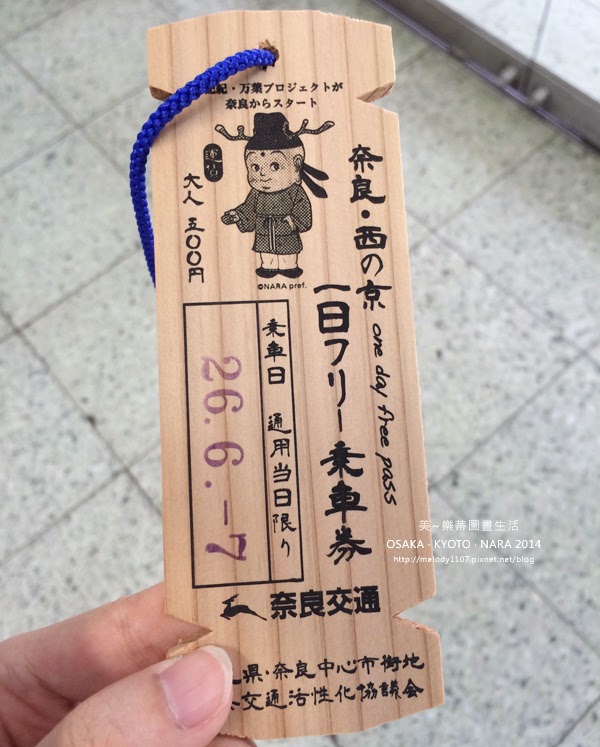 紀・万葉プロジェクトが
奈良からスタート
奈良・西の京
one day free pass
一日フリー乗車券
大人 五〇〇円
©NARA pref.
乗車日 通用当日限り
26.6.-7
奈良交通
県・奈良中心市街地
交通活性化協議会
美~樂蒂圖畫生活
OSAKA - KYOTO - NARA 2014
http://melody1107.pixnet.net/blog